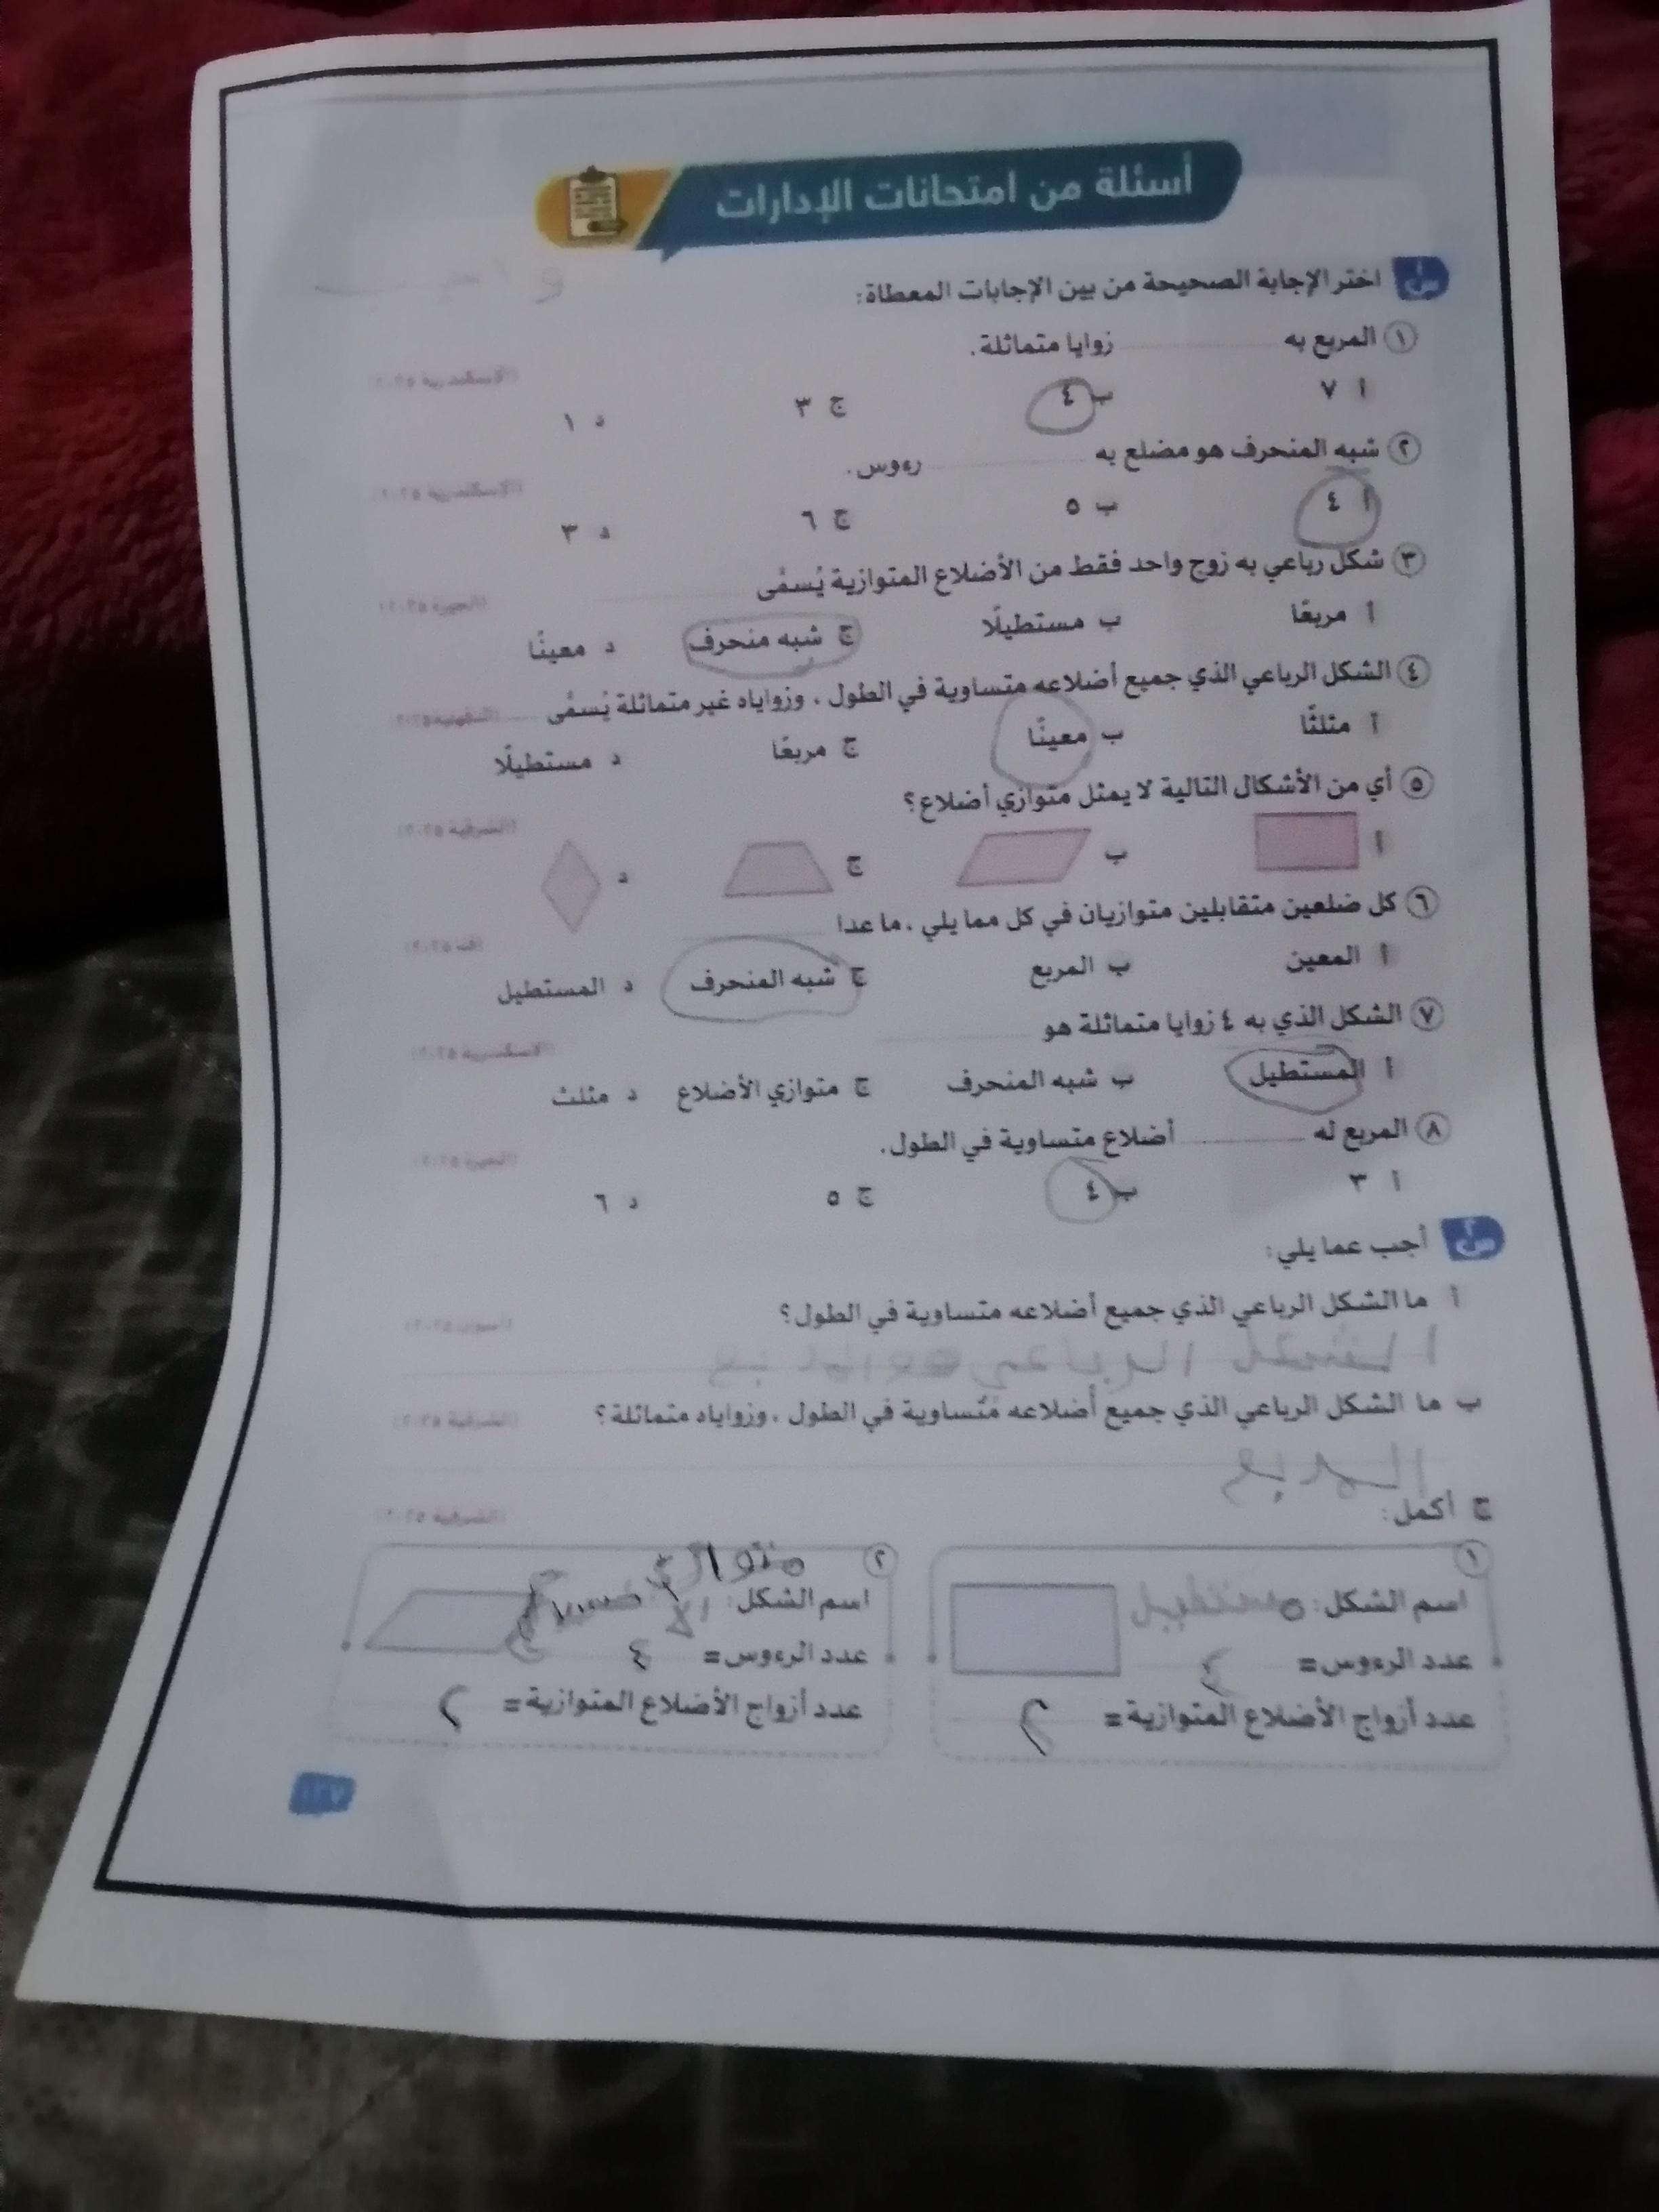 أسئلة من امتحانات الإدارات
س١ اختر الإجابة الصحيحة من بين الإجابات المعطاة:
١ المربع به زوايا متماثلة.
أ ٧ ب ٤ ج ٣ د ١
٢ شبه المنحرف هو مضلع به رءوس.
أ ٤ ب ٥ ج ٦ د ٣
٣ شكل رباعي به زوج واحد فقط من الأضلاع المتوازية يُسمَّى
أ مربعًا ب مستطيلًا ج شبه منحرف د معينًا
٤ الشكل الرباعي الذي جميع أضلاعه متساوية في الطول ، وزواياه غير متماثلة يُسمَّى
أ مثلثًا ب معينًا ج مربعًا د مستطيلًا
٥ أي من الأشكال التالية لا يمثل متوازي أضلاع؟
أ ب ج د
٦ كل ضلعين متقابلين متوازيان في كل مما يلي ، ما عدا
أ المعين ب المربع ج شبه المنحرف د المستطيل
٧ الشكل الذي به ٤ زوايا متماثلة هو
أ المستطيل ب شبه المنحرف ج متوازي الأضلاع د مثلث
٨ المربع له أضلاع متساوية في الطول.
أ ٣ ب ٤ ج ٥ د ٦
س٢ أجب عما يلي:
أ ما الشكل الرباعي الذي جميع أضلاعه متساوية في الطول؟
ب ما الشكل الرباعي الذي جميع أضلاعه متساوية في الطول ، وزواياه متماثلة؟
المربع
ج أكمل:
١
اسم الشكل: مستطيل
عدد الرءوس= ٤
عدد أزواج الأضلاع المتوازية= ٢
٢
اسم الشكل: متوازي
عدد الرءوس= ٤
عدد أزواج الأضلاع المتوازية= ٢
١٣٧